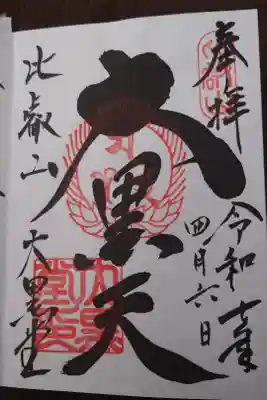 奉拝
令和七年
四月六日
大黒天
比叡山 大黒堂